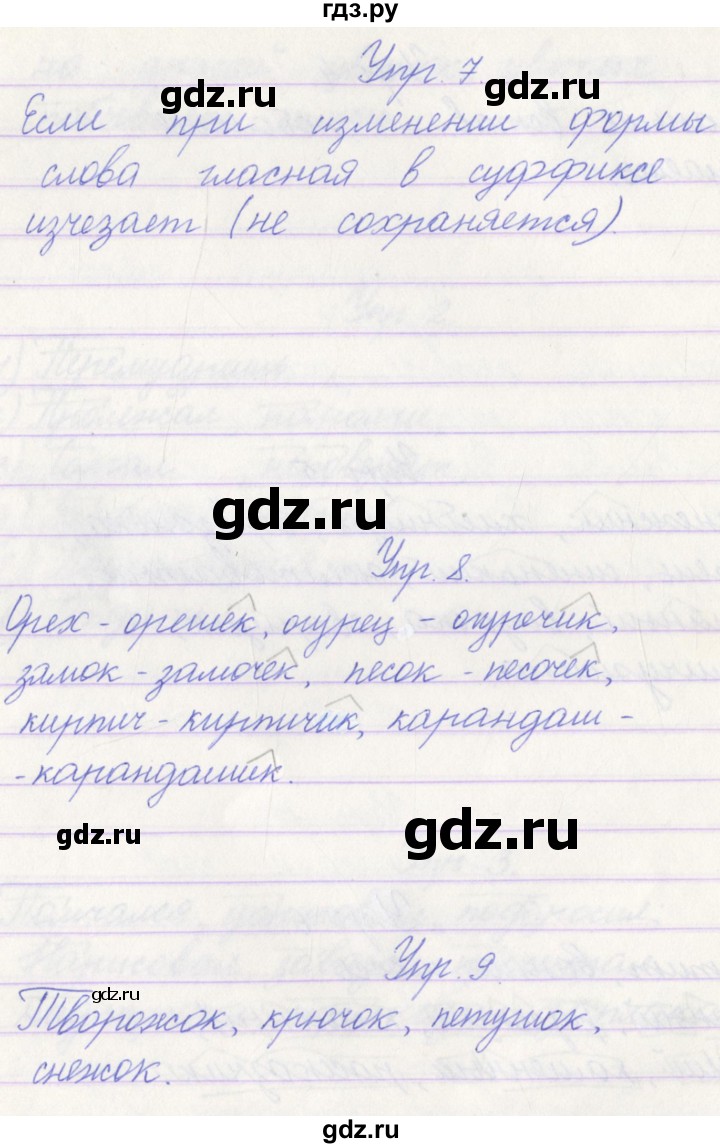 гдз.ру
Упр. 7.
gdz.ru
gdz.ru
Если при изменении формы
слова гласная в суффиксе
изчезает (не сохраняется).
gdz.ru
Упр. 8.
Орех - орешек, огурец - огуречик,
замок - замочек, песок - песочек,
кирпич - кирпичик, карандаш -
- карандашик.
gdz.ru
gdz.ru
Упр. 9
gdz.ru
Творожок, крючок, петушок,
снежок.
gdz.ru